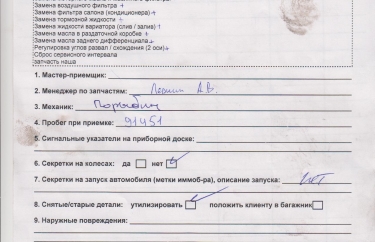 Замена воздушного фильтра +
Замена фильтра салона (кондиционера) +
Замена тормозной жидкости +
Замена жидкости вариатора (слив / залив) +
Замена масла в раздаточной коробке +
Замена масла заднего дифференциала +
Регулировка углов развал / схождения (2 оси) +
Сброс сервисного интервала
запчасть наша
1. Мастер-приемщик:
2. Менеджер по запчастям: А.В.
3. Механик:
4. Пробег при приемке: 91451
5. Сигнальные указатели на приборной доске:
6. Секретки на колесах: да нет ✓
7. Секретки на запуск автомобиля (метки иммоб-ра), описание запуска: нет
8. Снятые/старые детали: утилизировать ✓ положить клиенту в багажник
9. Наружные повреждения: